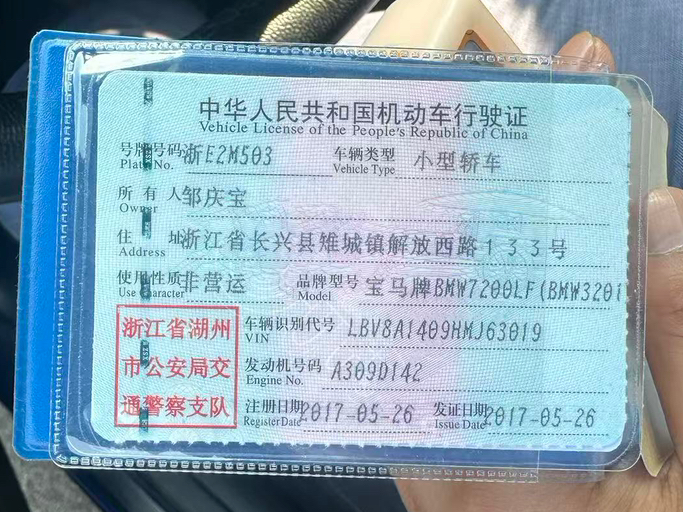 中华人民共和国机动车行驶证
Vehicle License of the People's Republic of China
号牌号码 浙E2M503 车辆类型 小型轿车
Plate No. Vehicle Type
所有人 邹庆宝
Owner
住址 浙江省长兴县雉城镇解放西路133号
Address
使用性质 非营运 品牌型号 宝马牌BMW7200LF(BMW320i
Use Character Model
浙江省湖州
市公安局交
通警察支队
车辆识别代号 LBV8A1409HMJ63019
VIN
发动机号码 A309D142
Engine No.
注册日期 2017-05-26 发证日期 2017-05-26
Register Date Issue Date